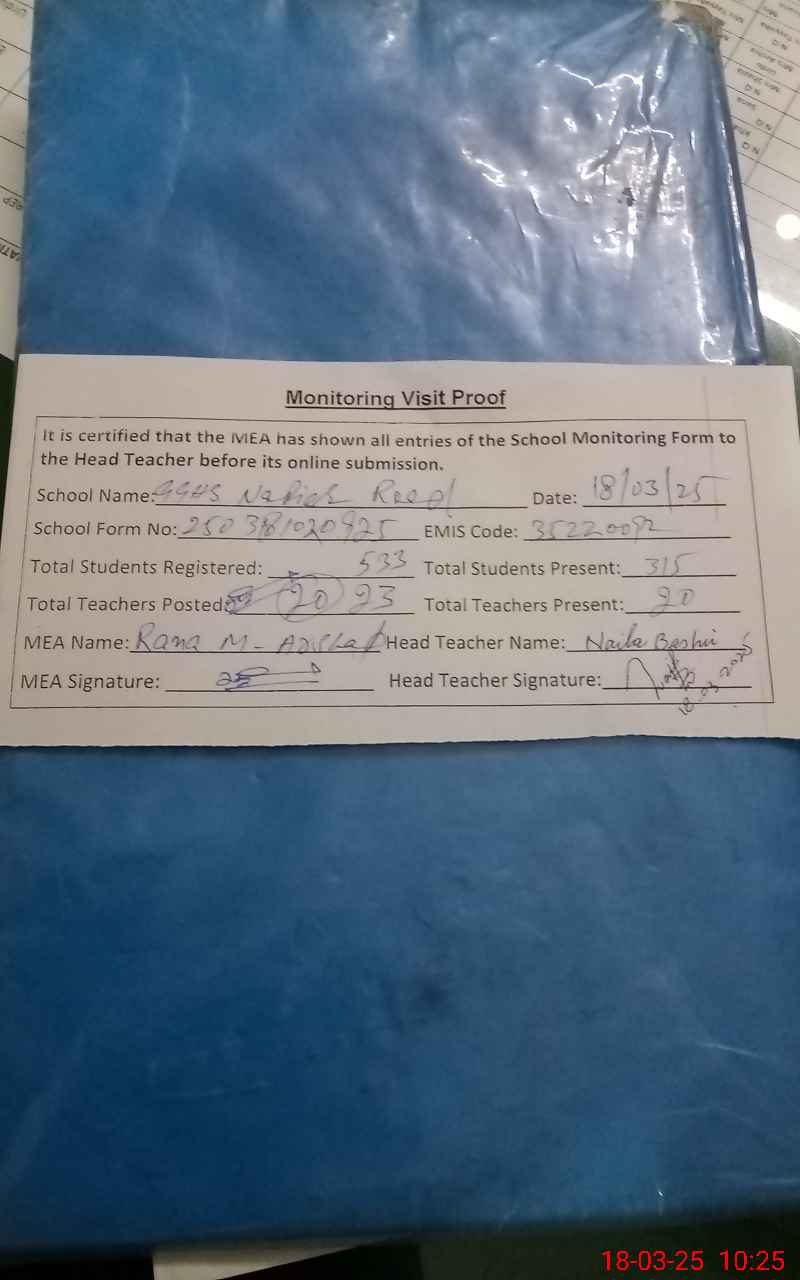 Monitoring Visit Proof
It is certified that the MEA has shown all entries of the School Monitoring Form to
the Head Teacher before its online submission.
School Name: GGHS Date: 18/03/25
School Form No: EMIS Code: 35220092
Total Students Registered: 533 Total Students Present: 315
Total Teachers Posted: 20 23 Total Teachers Present: 20
MEA Name: Rana M- Head Teacher Name: Naila Bashir
MEA Signature: Head Teacher Signature:
18-03-2025
18-03-25 10:25